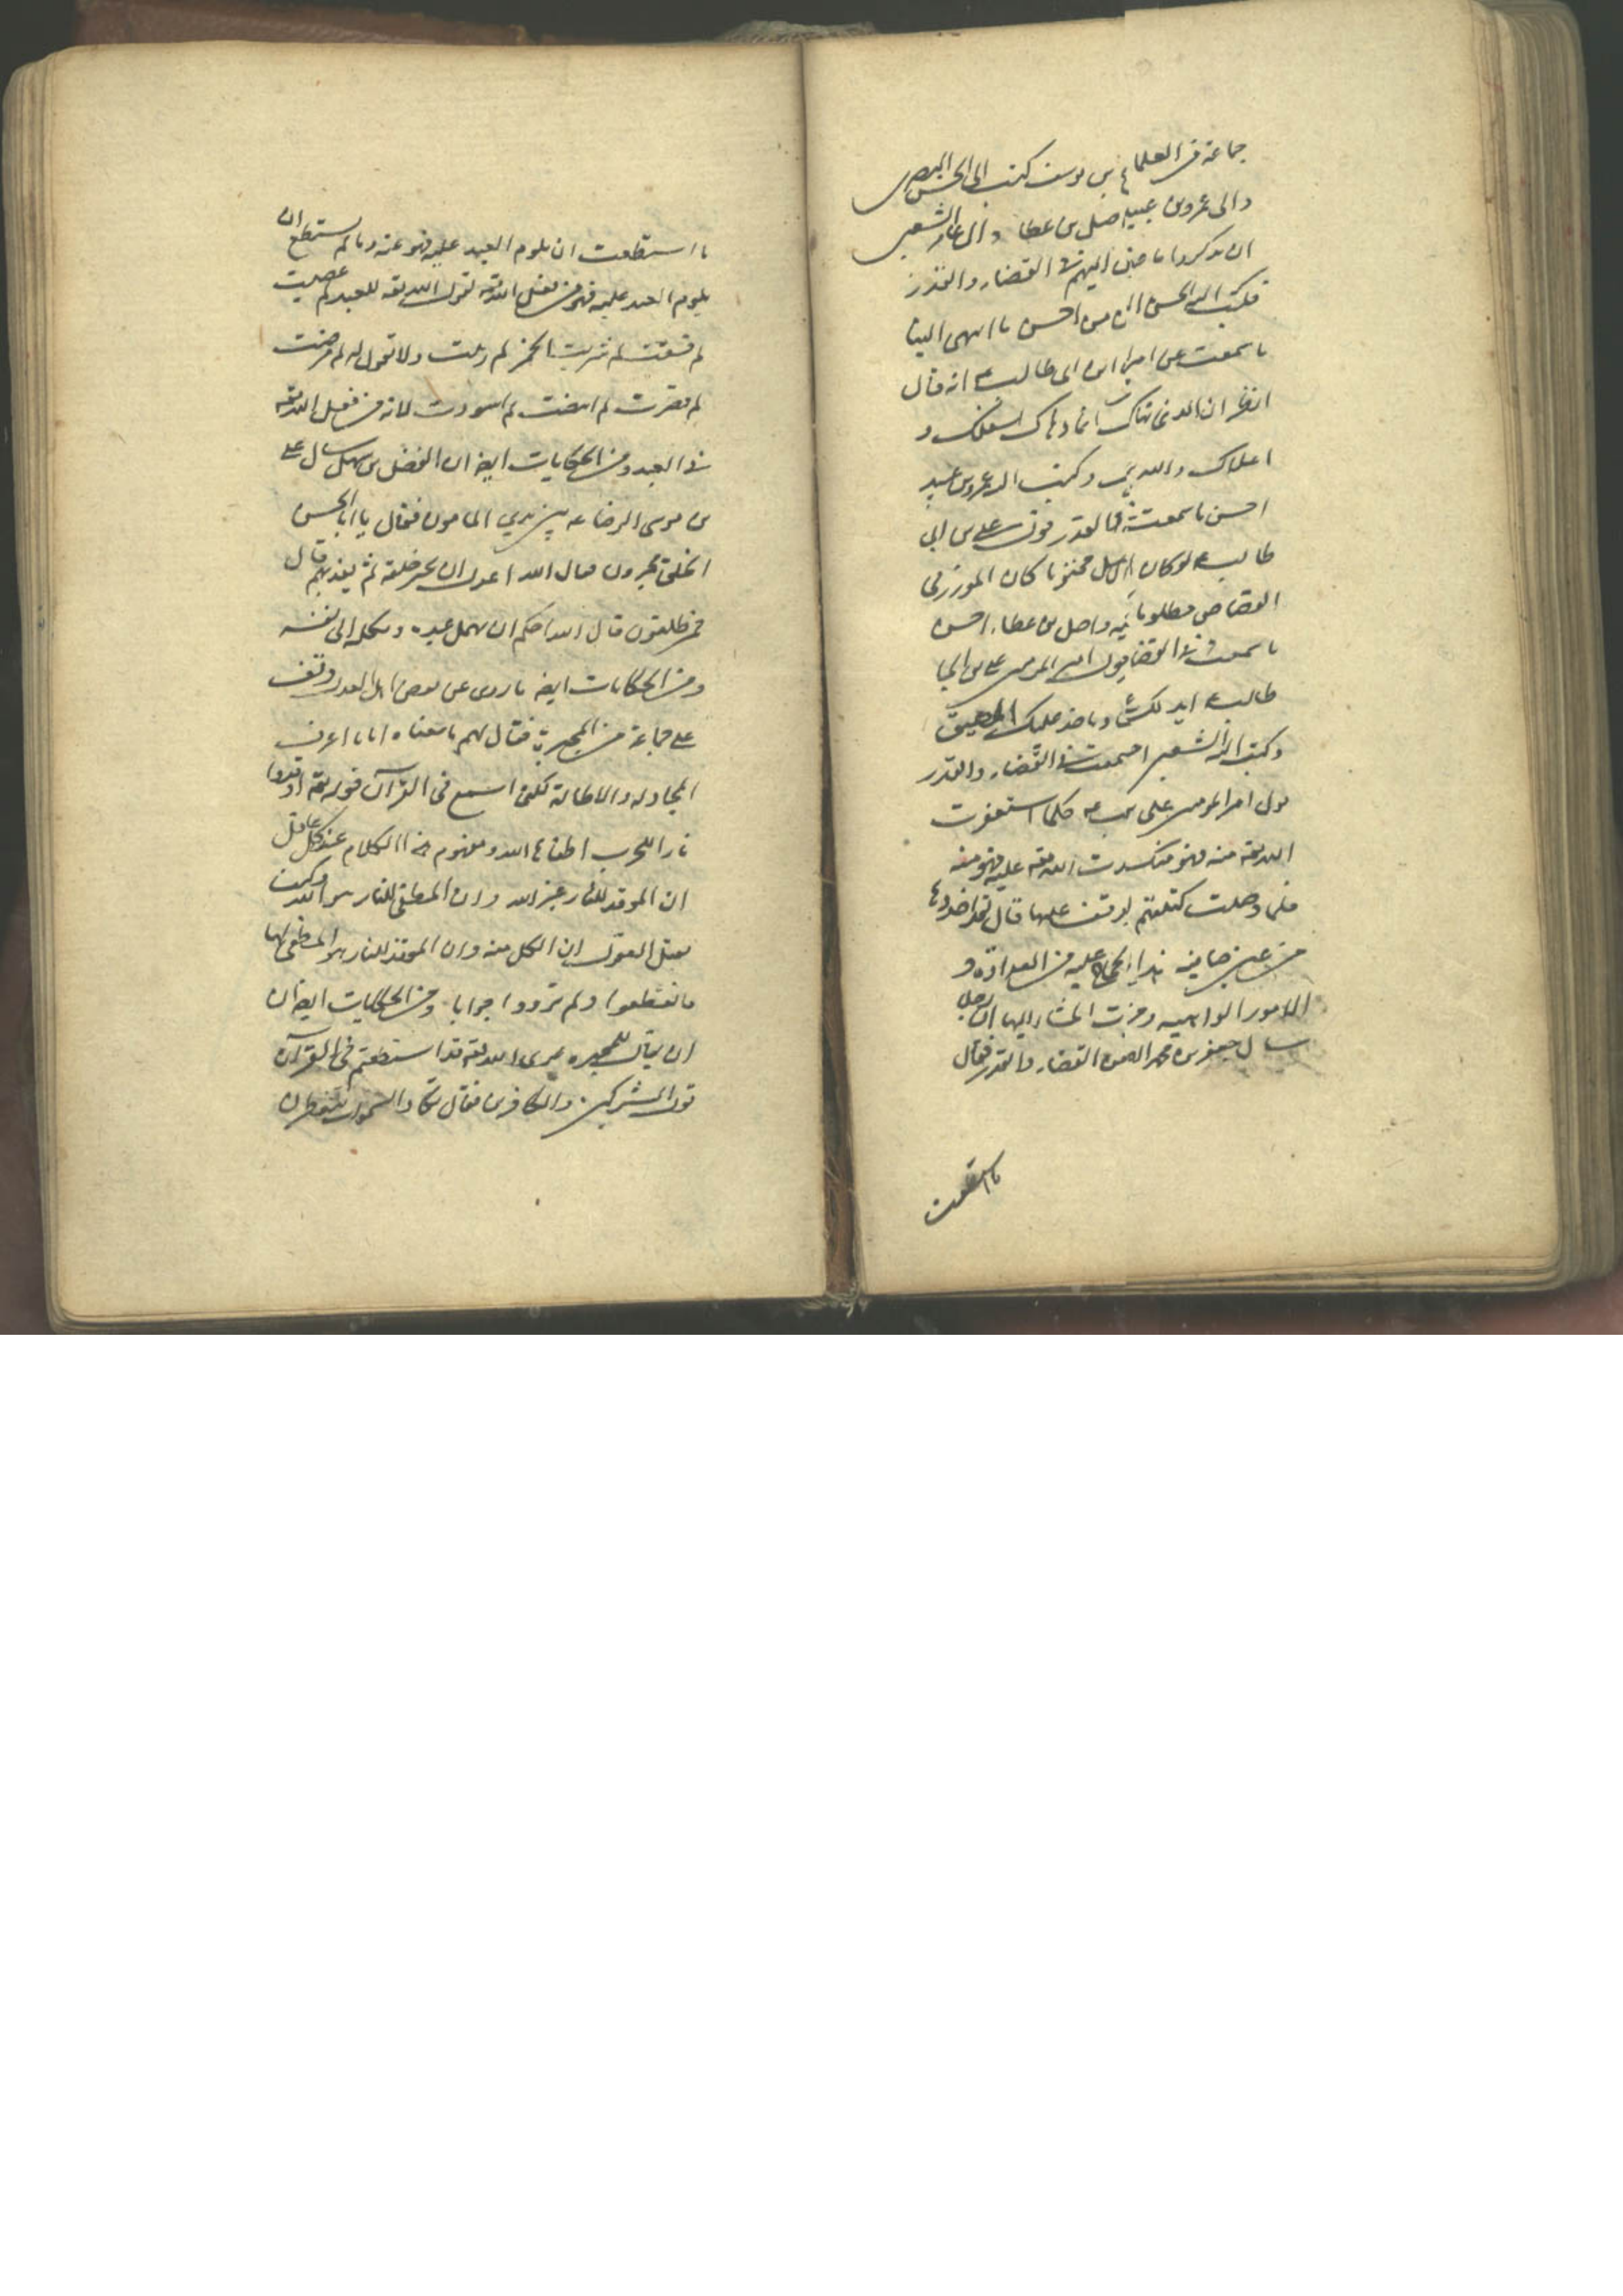 جماعة من العلماء بن يوسف كتب الى الحسن البصرى
والى عمرو بن عبيد واصل بن عطا والى عامر الشعبى
ان يذكروا ما اليهم فى القضاء والقدر
فكتب اليه الحسن ان من احسن ما انتهى الينا
ما سمعت عن امير ابن ابى طالب ع انه قال
اتظن ان الذى نهاك انما دهاك اسفلك و
اعلاك والله برى وكتب اليه عمرو بن عبيد
احسن ما سمعت فى القدر قول على بن ابى
طالب ع لو كان الاصل محتوما كان الموزر فى
القصاص مظلوما واصل بن عطاء احسن
ما سمعت فى القضا قول امير المومنين على بن ابى
طالب ع ايدلك على وياخذ عليك المضيق
وكتب اليه الشعبى احسن ما سمعت فى القضاء والقدر
قول امير المومنين على ع كلما استغفرت
الله تعه منه فهو منك حمدت الله تعه عليه فهو منه
فلما وصلت كتبهم ووقف عليها قال لقد اخذوها
من عين صافيه هذا عليه من العداوة و
الامور الواهيه المشار اليها ان رجل
سال جعفر بن محمد الصادق القضاء والقدر فقال
ما استطعت
ما استطعت ان يلوم العبد عليه فهو عنه وما لم يستطع ان
يلوم العبد عليه فهو من فعل الله تعه يقول الله تعه للعبد لم عصيت
لم فسقت لم شربت الخمر لم زنيت ولا يقول له لم مرضت
لم قصرت لم ابيضت لم اسودت لانه من فعل الله تعه
فى العبد ومن الحكايات ايضا ان الفضل بن سهل سال على
بن موسى الرضا ع بين يدى المامون فقال يا ابا الحسن
الخلق مجبرون فقال الله اعدل ان يجبر خلقه ثم يعذبهم قال
فمطلقون قال الله احكم ان يهمل عبده ويكله الى نفسه
ومن الحكايات ايضا ما روى عن بعض اهل العدل وقف
على جماعة من المجبرة فقال لهم ما معناه انا ما اعرف
المجادله والاطالة لكنى اسمع فى القرآن قوله تعه اوقدوا
نارا للحرب اطفاها الله ومفهوم هذا الكلام عند كل عاقل
ان الموقد للنار غير الله وان المطفى للنار هو الله وكيف
تقبل العقول ان الكل منه وان الموقد للنار هو المطفى لها
فانقطعوا ولم يردوا جوابا ومن الحكايات ايضا ان
ان يقال للمجبره نرى الله تعه قد استعظم فى القرآن
قول المشركين والكافرين فقال تكاد السموات يتفطرن